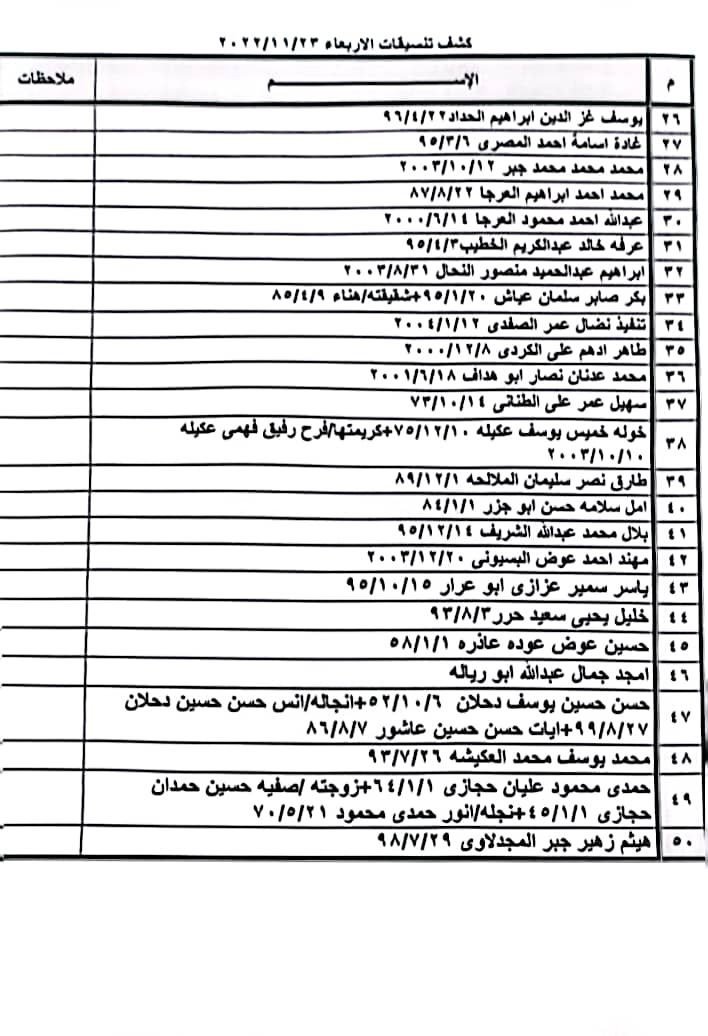 كشف تنسيقات الاربعاء ٢٠٢٢/١١/٢٣
م الاســـــــــم ملاحظات
٢٦ يوسف عز الدين ابراهيم الحداد٩٦/٤/٢٢
٢٧ غادة اسامة احمد المصرى ٩٥/٣/٦
٢٨ محمد محمد محمد جبر ٢٠٠٣/١٠/١٢
٢٩ محمد احمد ابراهيم العرجا ٨٧/٨/٢٢
٣٠ عبدالله احمد محمود العرجا ٢٠٠٠/٦/١٤
٣١ عرفه خالد عبدالكريم الخطيب٩٥/٤/٣
٣٢ ابراهيم عبدالحميد منصور النحال ٢٠٠٣/٨/٣١
٣٣ بكر صابر سلمان عياش ٩٥/١/٢٠+شقيقته/هناء ٨٥/٤/٩
٣٤ تنفيذ نضال عمر الصفدى ٢٠٠٤/١/١٢
٣٥ طاهر ادهم على الكردى ٢٠٠٠/١٢/٨
٣٦ محمد عدنان نصار ابو هداف ٢٠٠١/٦/١٨
٣٧ سهيل عمر على الطنانى ٧٣/١٠/١٤
٣٨ خوله خميس يوسف عكيله ٧٥/١٢/١٠+كريمتها/فرح رفيق فهمى عكيله
٢٠٠٣/١٠/١٠
٣٩ طارق نصر سليمان الملالحه ٨٩/١٢/١
٤٠ امل سلامه حسن ابو جزر ٨٤/١/١
٤١ بلال محمد عبدالله الشريف ٩٥/١٢/١٤
٤٢ مهند احمد عوض البسيونى ٢٠٠٣/١٢/٢٠
٤٣ ياسر سمير عزازى ابو عرار ٩٥/١٠/١٥
٤٤ خليل يحيى سعيد حرر٩٣/٨/٣
٤٥ حسين عوض عوده عاذره ٥٨/١/١
٤٦ امجد جمال عبدالله ابو رياله
٤٧ حسن حسين يوسف دحلان ٥٢/١٠/٦+انجاله/انس حسن حسين دحلان
٩٩/٨/٢٧+ايات حسن حسين عاشور ٨٦/٨/٧
٤٨ محمد يوسف محمد العكيشه ٩٣/٧/٢٦
٤٩ حمدى محمود عليان حجازى ٦٤/١/١+زوجته /صفيه حسين حمدان
حجازى ٤٥/١/١+نجله/انور حمدى محمود ٧٠/٥/٢١
٥٠ هيثم زهير جبر المجدلاوى ٩٨/٧/٢٩